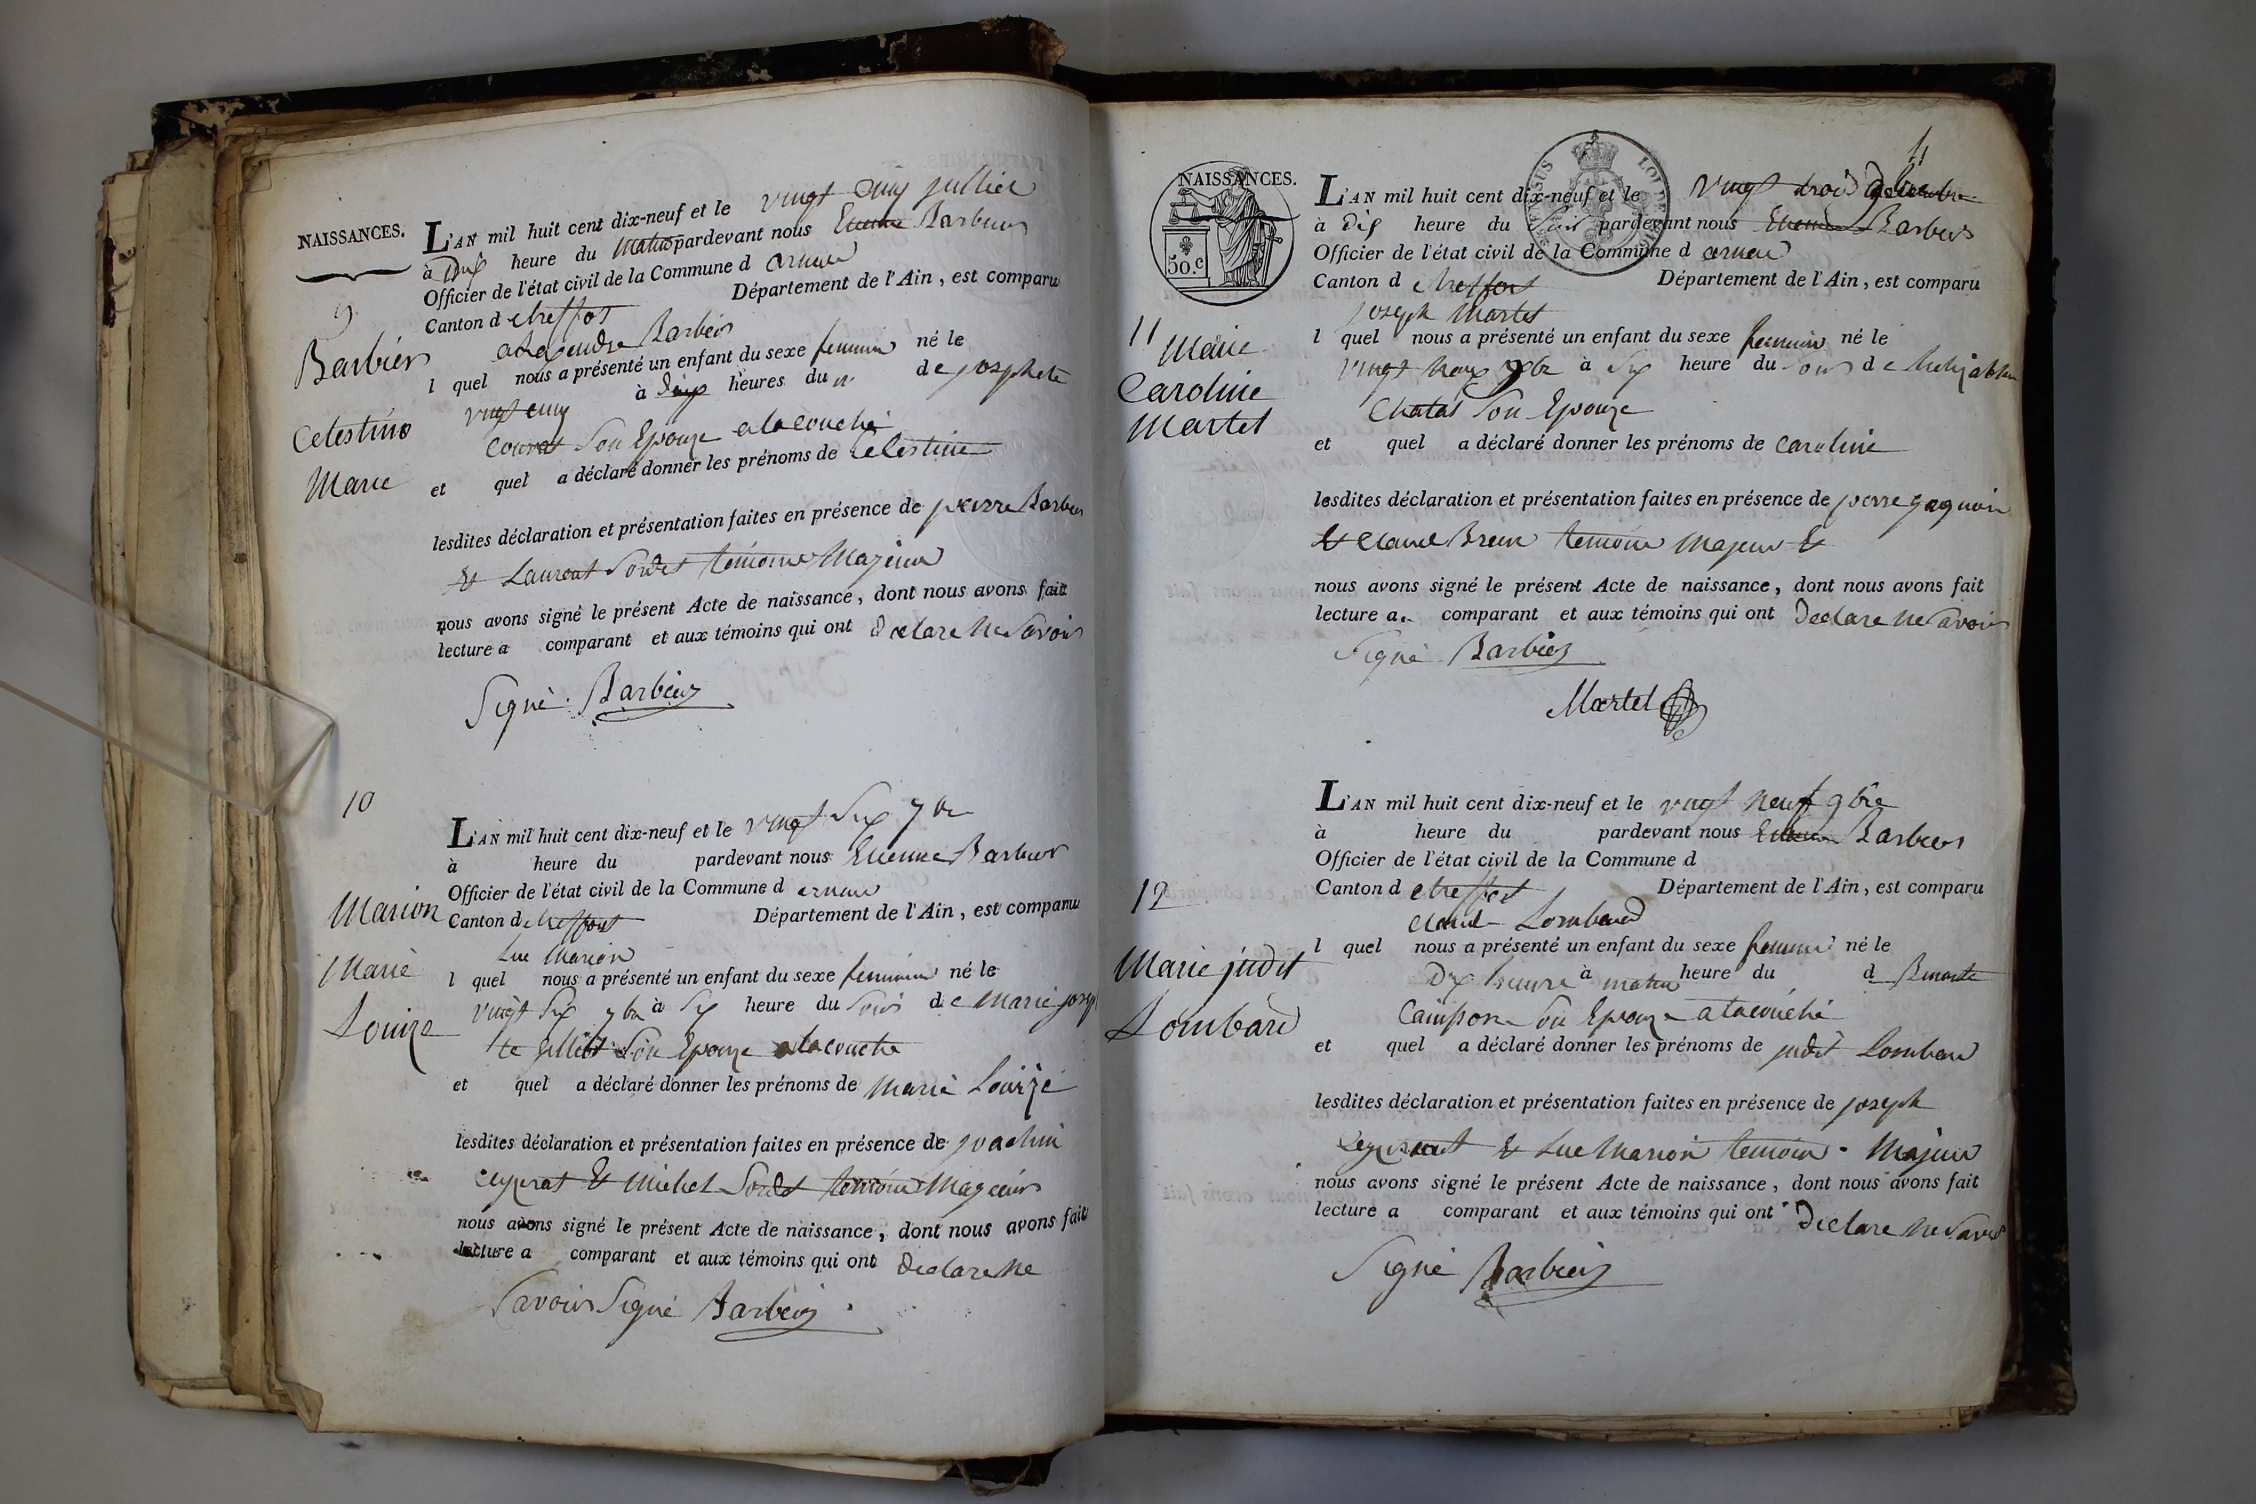 NAISSANCES.
L'AN mil huit cent dix-neuf et le vingt cinq julliet
à dix heure du matin pardevant nous Etienne Barbier
Officier de l'état civil de la Commune d arnan
Canton d treffort Département de l'Ain, est comparu
Barbier
l quel nous a présenté un enfant du sexe feminin né le
vingt cinq à heures du de josephete
son Epouze
et quel a déclaré donner les prénoms de Celestine
lesdites déclaration et présentation faites en présence de pierre Barbier
& Laurent Sordet témoins Majeur
nous avons signé le présent Acte de naissance, dont nous avons fait
lecture a comparant et aux témoins qui ont declare ne Savoir
Signé Barbier
9
Barbier
Celestine
Marie
10
L'AN mil huit cent dix-neuf et le vingt Six 7bre
à heure du pardevant nous Etienne Barbier
Officier de l'état civil de la Commune d arnan
Canton d treffort Département de l'Ain, est comparu
Luc Marion
l quel nous a présenté un enfant du sexe feminin né le
vingt Six 7bre à Six heure du Soir de Marie josep
te Son Epouze
et quel a déclaré donner les prénoms de Marie Louize
lesdites déclaration et présentation faites en présence de joachin
& Michel Sordet témoins Majeur
nous avons signé le présent Acte de naissance, dont nous avons fait
lecture a comparant et aux témoins qui ont declare ne
Savoir Signé Barbier
Marion
Marie
Louize
4
NAISSANCES.
50.c
L'AN mil huit cent dix-neuf et le vingt trois
à dix heure du Soir pardevant nous Etienne Barbier
Officier de l'état civil de la Commune d arnan
Canton d treffort Département de l'Ain, est comparu
joseph Martel
l quel nous a présenté un enfant du sexe feminin né le
vingt à Six heure du Soir de
Son Epouze
et quel a déclaré donner les prénoms de Caroline
lesdites déclaration et présentation faites en présence de pierre
& Claude témoin Majeur &
nous avons signé le présent Acte de naissance, dont nous avons fait
lecture a comparant et aux témoins qui ont declare ne Savoir
Signé Barbier
Martel
11
Marie
Caroline
Martel
L'AN mil huit cent dix-neuf et le vingt neuf 9bre
à heure du pardevant nous Etienne Barbier
Officier de l'état civil de la Commune d
Canton d treffort Département de l'Ain, est comparu
Claude Lombard
l quel nous a présenté un enfant du sexe feminin né le
Dix heure à matin heure du d
Son Epouze
et quel a déclaré donner les prénoms de judit Lombard
lesdites déclaration et présentation faites en présence de joseph
& Luc Marion témoin Majeur
nous avons signé le présent Acte de naissance, dont nous avons fait
lecture a comparant et aux témoins qui ont declare ne Savoir
Signé Barbier
12
Marie judit
Lombard